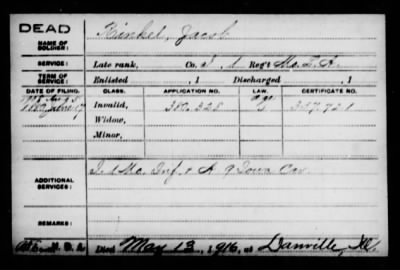 DEAD
NAME OF SOLDIER:
Hinkel, Jacob
SERVICE:
Late rank, Co. I, 1 Reg't Mo. L. A.
TERM OF SERVICE:
Enlisted , 1 Discharged , 1
DATE OF FILING. CLASS. APPLICATION NO. LAW. CERTIFICATE NO.
Invalid, 380.328 357.721
Widow,
Minor,
ADDITIONAL SERVICES:
I. 1 Mo. Inf. & A 9 Iowa Cav.
REMARKS:
Died May 13, 1916, at Danville, Ill.